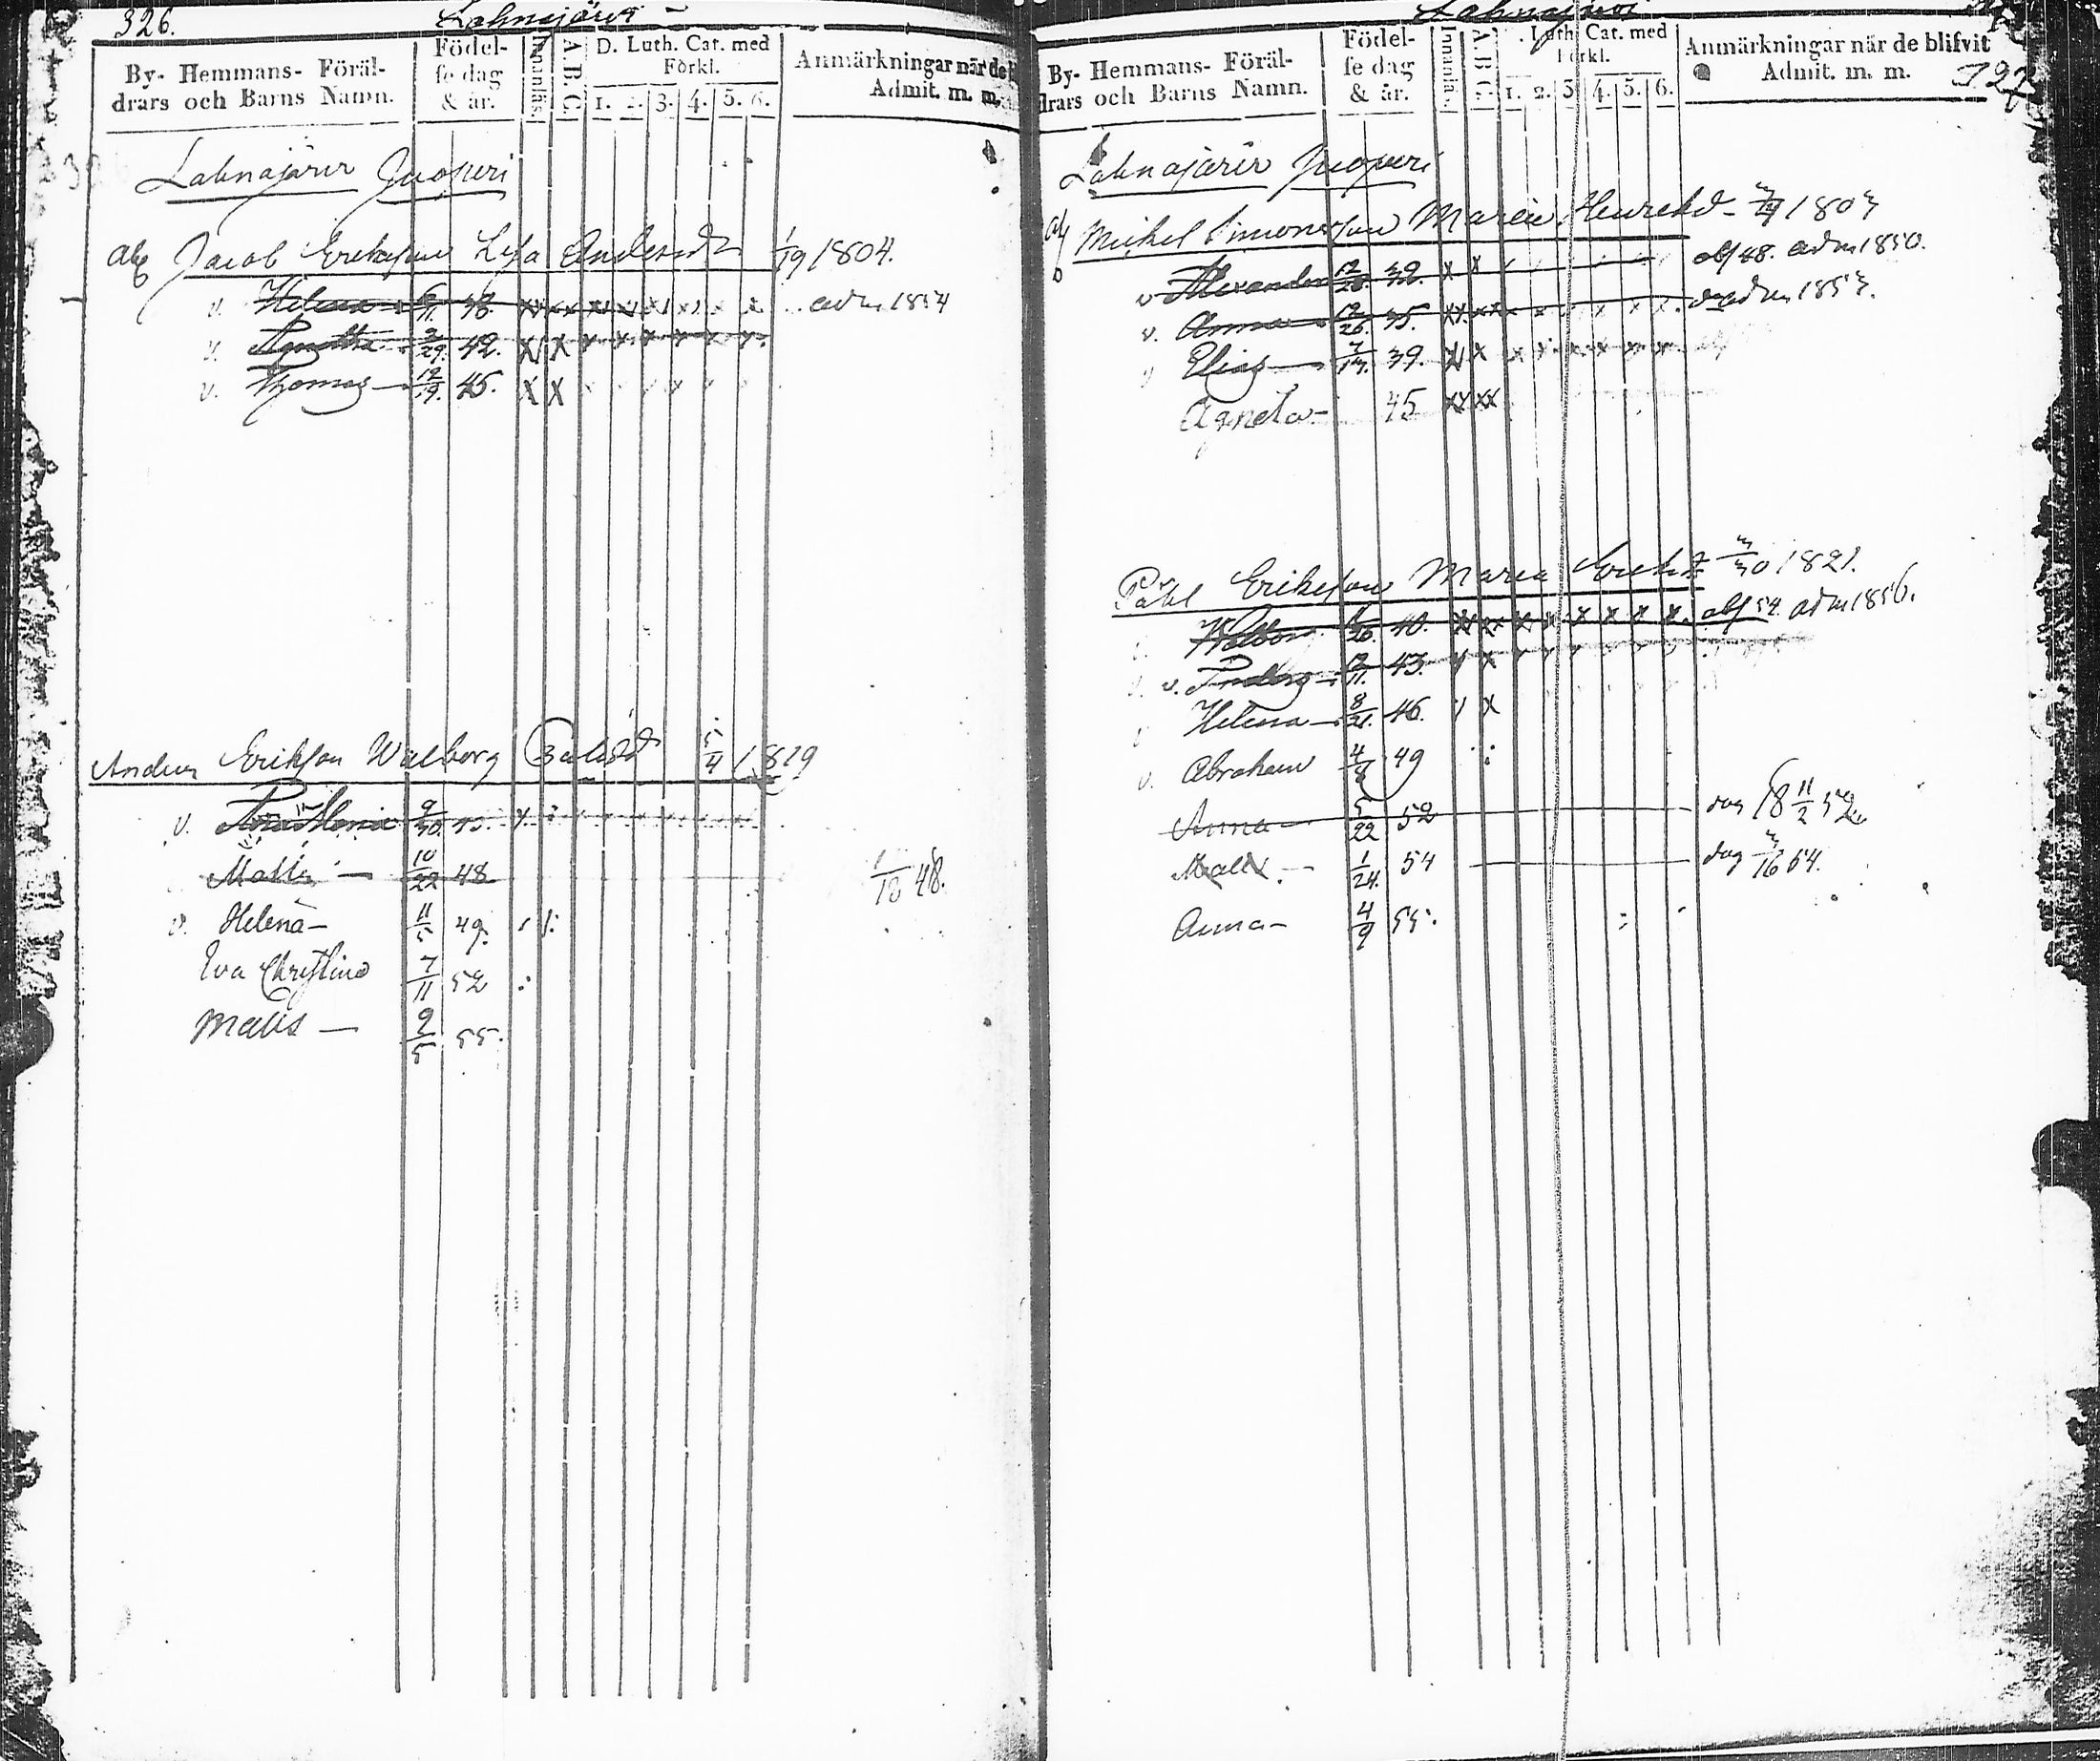 326.
Lahnajärvi
By- Hemmans- Föräl-
drars och Barns Namn.
Födel-
se dag
& år.
Innanläs.
A. B. C.
D. Luth. Cat. med
Förkl.
1. 2. 3. 4. 5. 6.
Anmärkningar när de
Admit. m. m.
Lahnajärvi Juopuri
Jacob Eriksson Lisa Andersd 1/19 1804.
v. Helena 38. adm 1854
v. Agnetha 2/29. 42. x x x x x x x x
v. Thomas 12/19. 45. x x
Anders Erikson Walborg 5/4 1819
v. 9/30
Matts 10/22 48 1/18 48.
v. Helena 11/5 49.
Eva Christina 7/11 52
Matts 9/5 55.
Lahnajärvi
327
By- Hemmans- Föräl-
drars och Barns Namn.
Födel-
se dag
& år.
Innanläs.
A. B. C.
Luth. Cat. med
Förkl.
1. 2. 3. 4. 5. 6.
Anmärkningar när de blifvit
Admit. m. m.
Lahnajärvi Juopuri
Michel Simonsson Maria Henriksd 1803
v Alexander 12/28. 32. x x abs 48. adm 1850.
v. Anna 12/26. 35. adm 1853.
v Elias 7/13. 39. x x x x x x x x
Agneta 45. xx xx
Påhl Eriksson Maria Erichsd 3/30 1821.
Walborg 40. abs 54. adm 1856.
v. 12/11. 43.
v Helena 8/21. 46. x
v. Abraham 4/8 49
Anna 5/22 52 dog 18 11/2 52
Matts 1/24. 54 dog 3/16 54.
Anna 4/9 55.